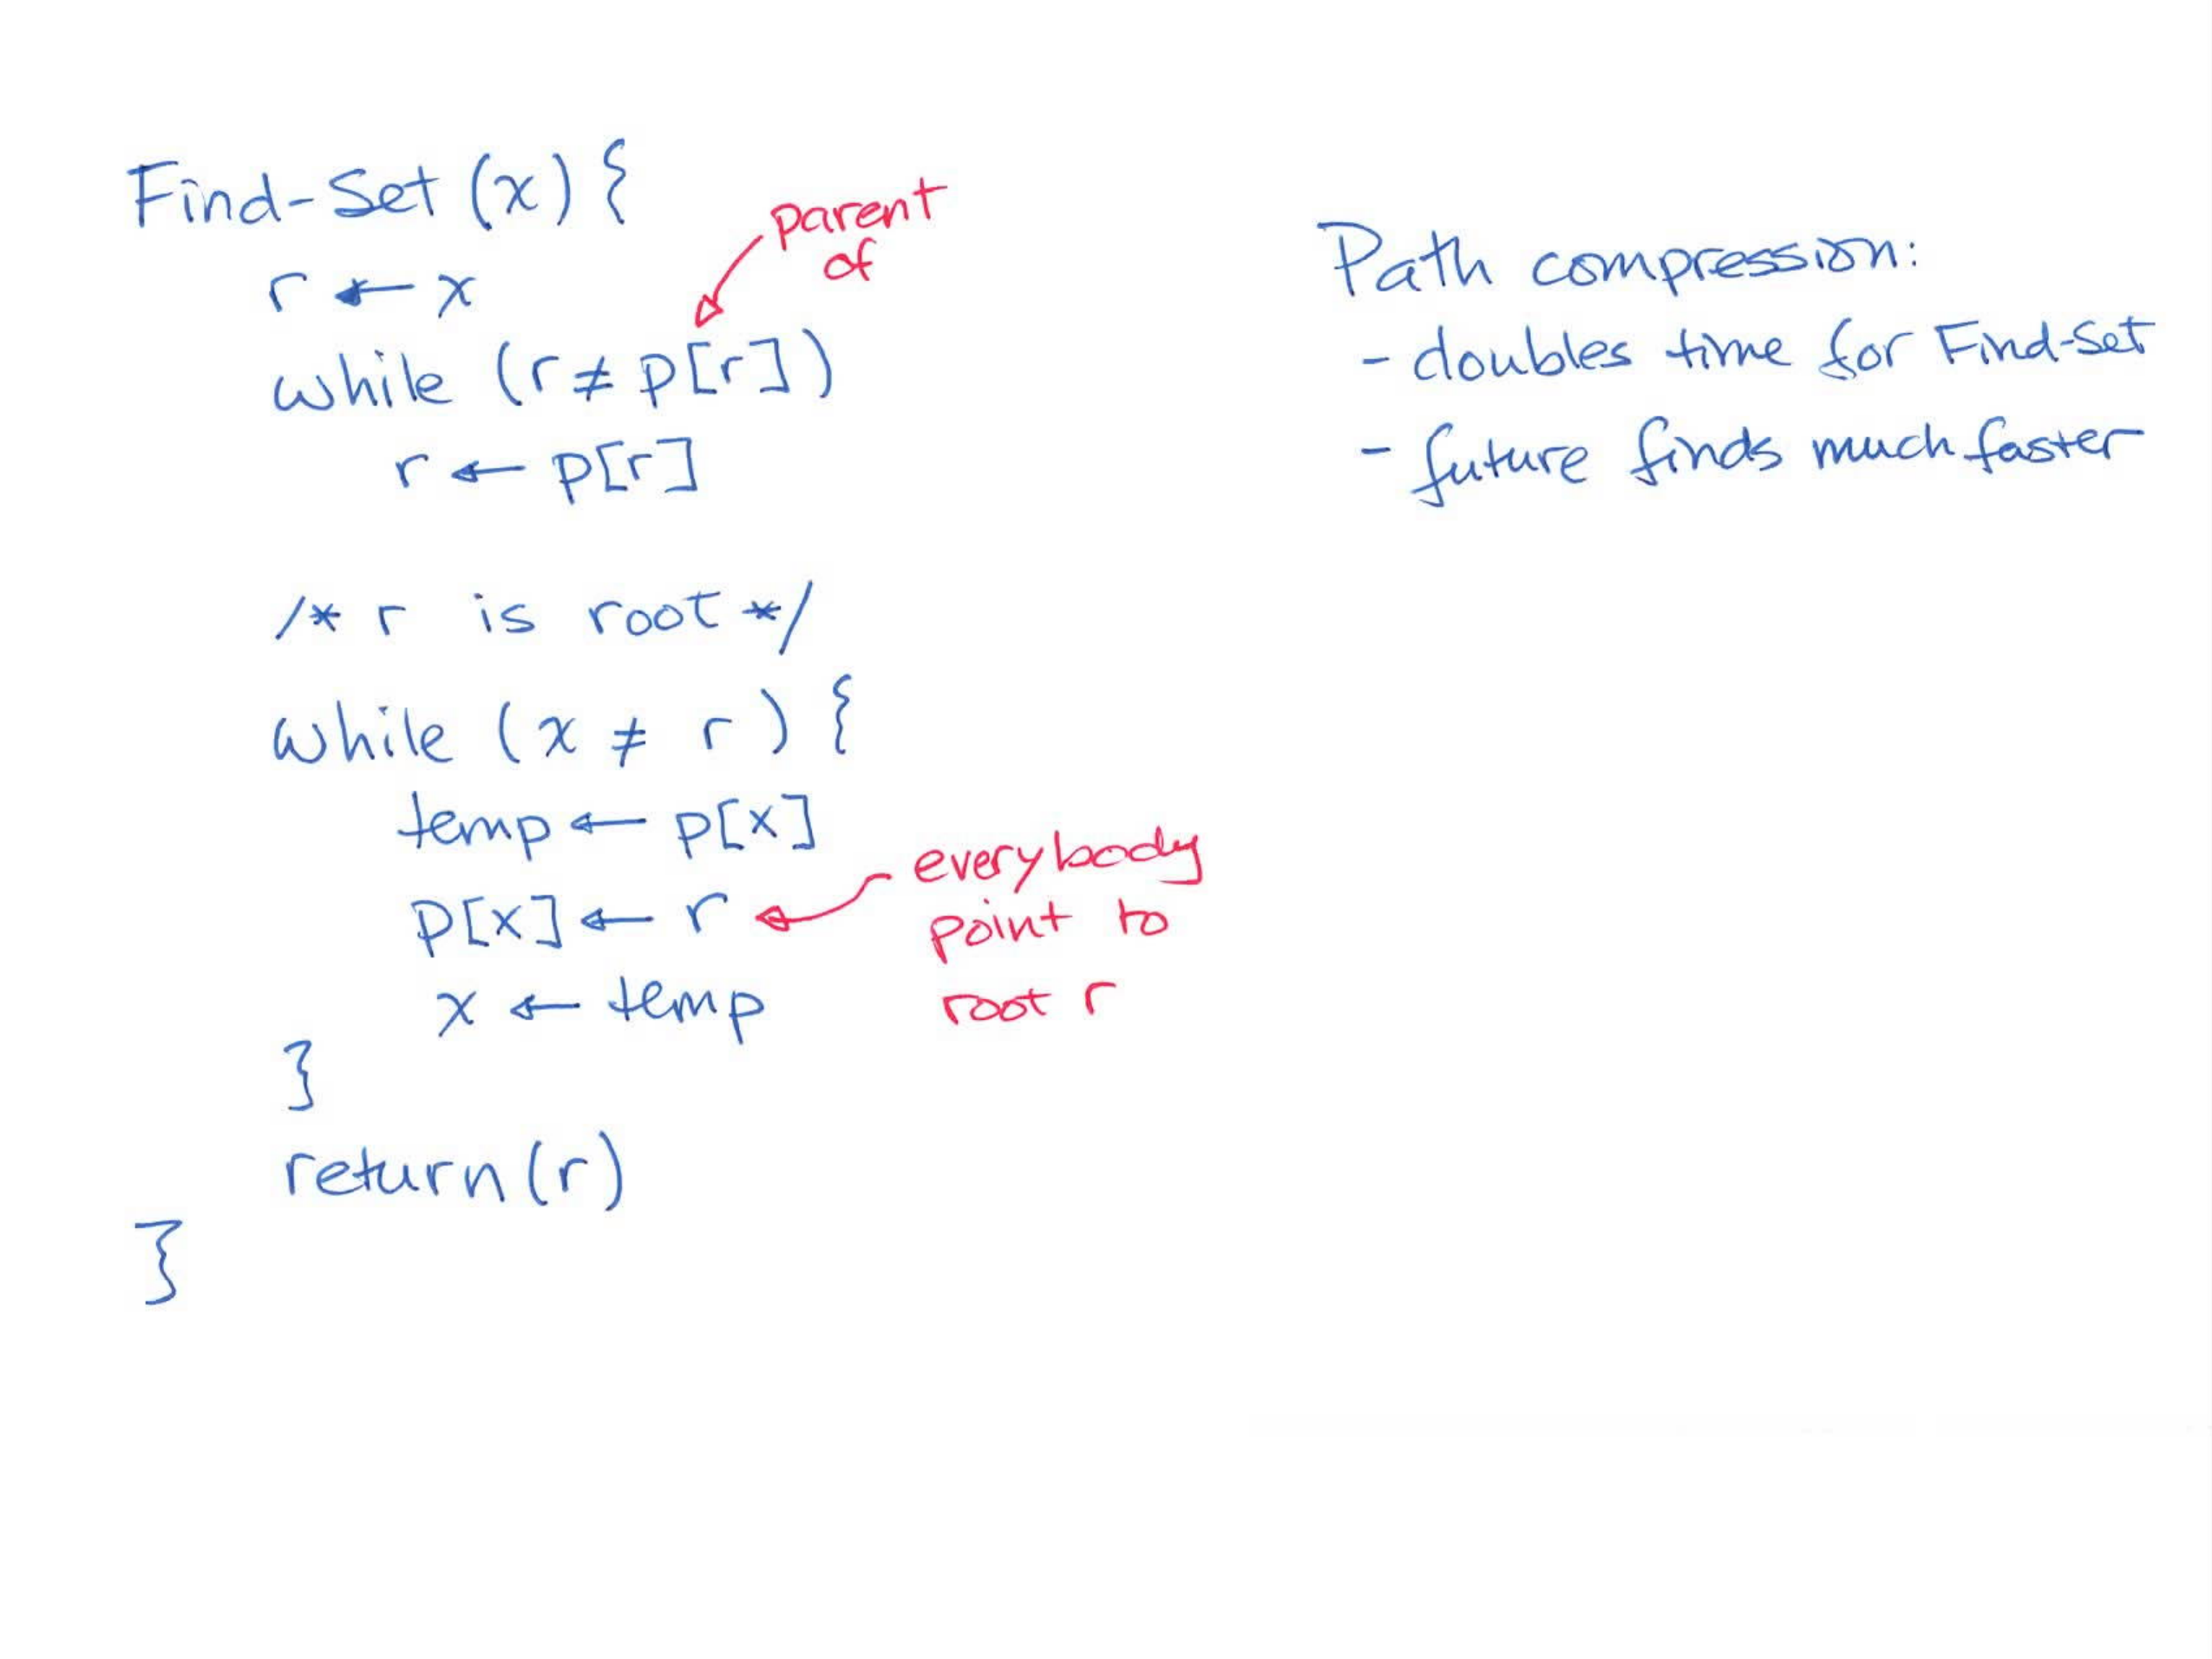 Find-Set (x) {
parent
of
r ← x
while (r ≠ p[r])
r ← p[r]
/* r is root */
while (x ≠ r) {
temp ← p[x]
p[x] ← r
everybody
point to
root r
x ← temp
}
return (r)
}
Path compression:
- doubles time for Find-Set
- future finds much faster